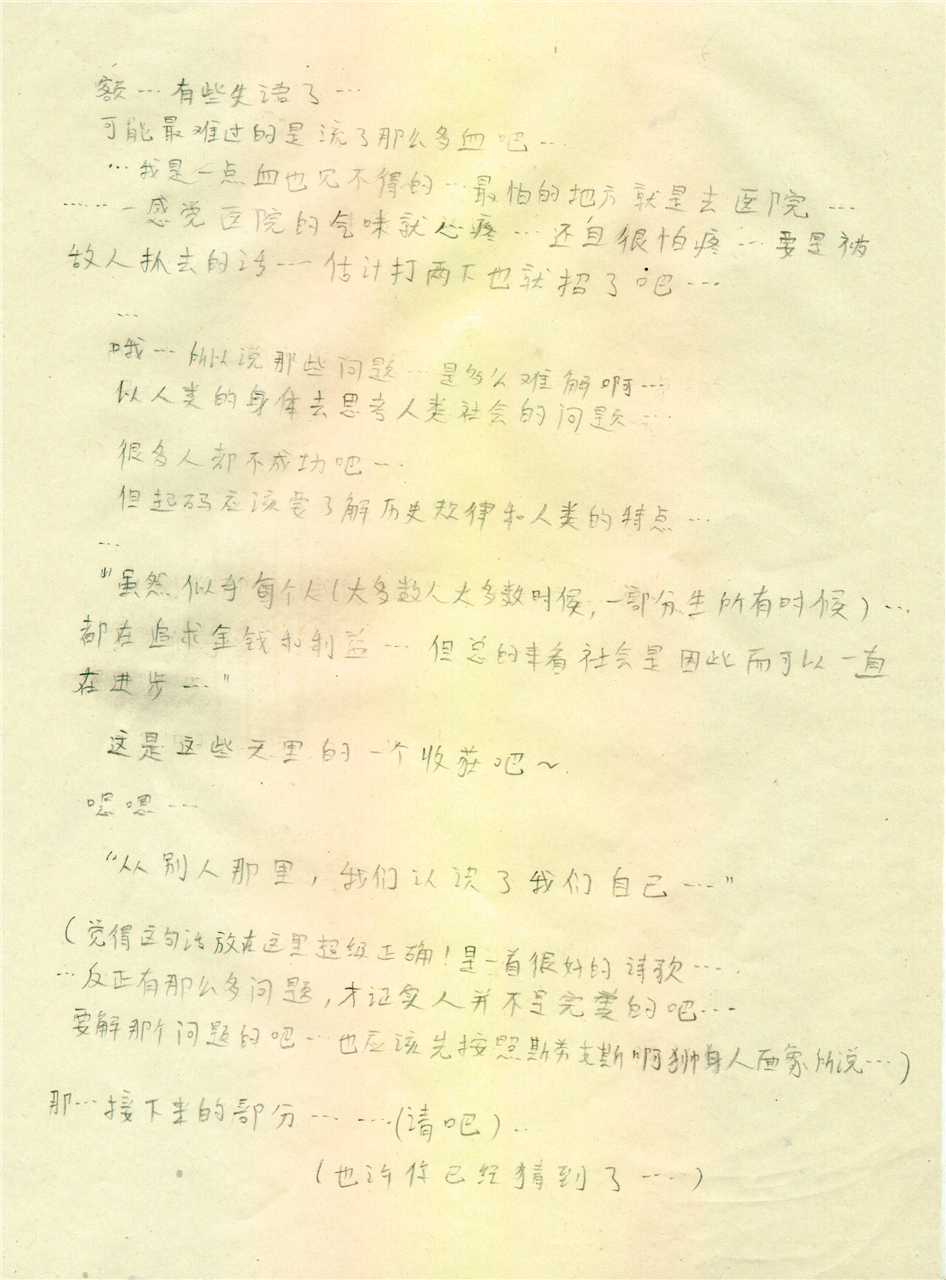 额…有些失语了…
可能最难过的是流了那么多血吧…
…我是一点血也见不得的…最怕的地方就是去医院…
……一感觉医院的气味就心疼…还且很怕疼…要是被
敌人抓去的话…估计打两下也就招了吧…
…
哦…所以说那些问题…是多么难解啊…
以人类的身体去思考人类社会的问题…
很多人都不成功吧…
但起码应该要了解历史规律和人类的特点…
…
"虽然似乎每个人(大多数人大多数时候,一部分生所有时候)…
都在追求金钱和利益…但总的来看社会是因此而可以一直
在进步…"
这是这些天里的一个收获吧~
嗯嗯…
"从别人那里,我们认识了我们自己…"
(觉得这句话放在这里超级正确!是一首很好的诗歌…
…反正有那么多问题,才证实人并不是完美的吧…
要解那个问题的吧…也应该先按照斯芬克斯啊狮身人面象所说…)
那…接下来的部分……(请吧)..
(也许你已经猜到了…)